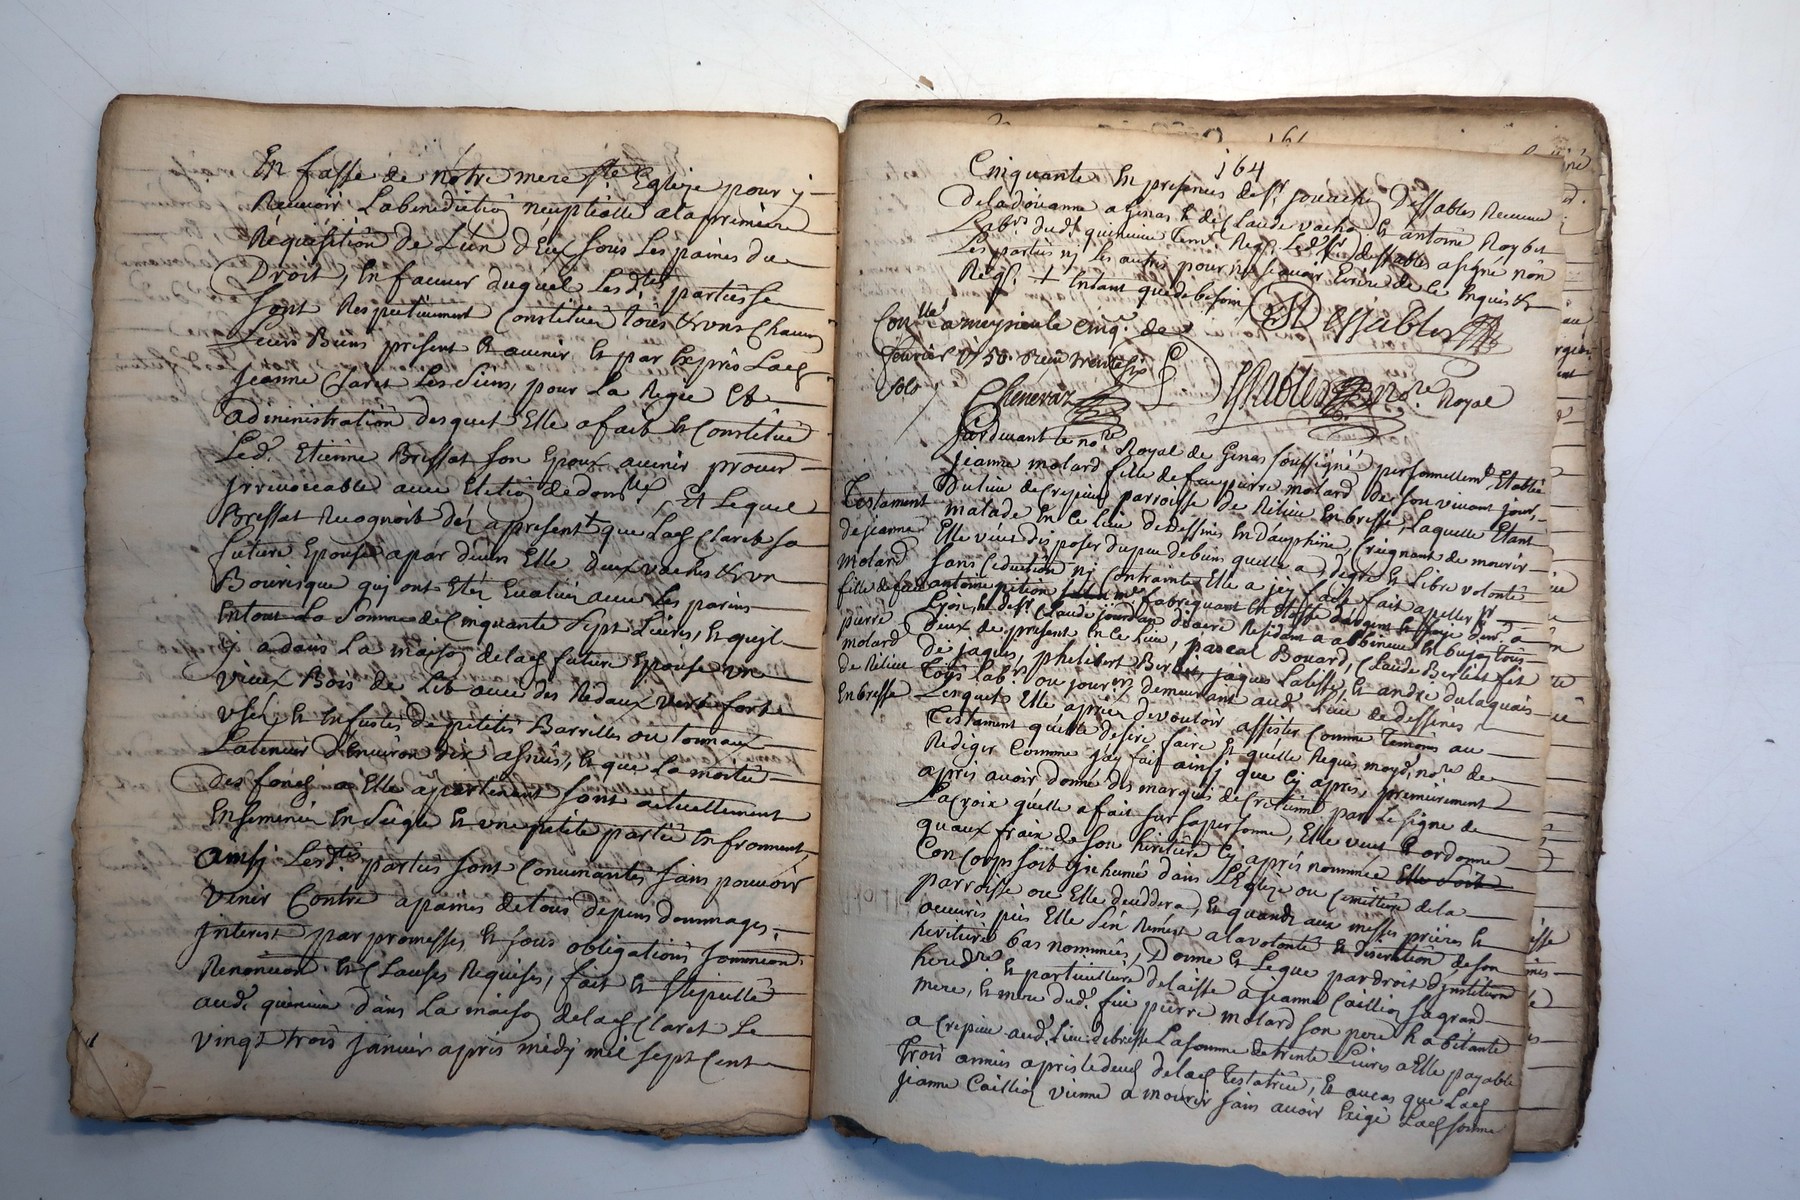 En fasse de nôtre mere Ste Eglize pour y
Recevoir La benediction neuptialle a la premiere
Réquisition de L'ün d'Eux sous Les paines du
Droit, En faveur duquel Lesdtes parties se
sont Respectivement Constitües tous &vuns Chacun
Leurs Biens present & avenir & par Exprès Lad
Jeanne Claret Les siens, pour La Regie Et
administration desquels Elle a fait & Constitüé
Led. Etienne Brissat son Epoux avenir procur
Irrevoccable avec Election de domlle, Et Lequel
Brissat Recognoit dez apresent + que Lad Claret sa
future Epouse a par devers Elle deux vaches &vn
Bourrique qui ont Etéz Evalüéz avec Les parins
En tout La somme de Cinquante Sept Livres, & quyl
y a dans La maison de lad future Epouse un
vieux Bois de Lit avec des Redaux verds fort
uséz & En fustes de petits Barrilles ou tonnaux
La teneur d'Environ dix asnéés, & que La moitié
des fonds a Elle apartenent sont actuellement
Ensemencéz En Seigle & vne petite partie En froment,
ainsy Lesdtes parties sont Convenantes sans pouvoir
venir Contre a paines de tous depens dommages
Interest par promesses & sous obligations soumissions
Renonciaon & Clauses Requises, fait & stipullé
aud. quinieu dans La maison de lad Claret Le
vingt trois Janvier apres midy mil sept Cent
164
Cinquante En presences de sr Dessables Receveur
de la doüanne a Ginas & de Claude vacho & antoine Roybet
Labrs dud. quinieu Tem. Req. Led. sr dessables a signé non
Les parties ny Les autres pour ne sçavoir Ecrire de Ce Enquis &
Req. + Entant que de besoin
Dessables
Conllé a meyrieu le cinq. de
fevrier 1750. Receu trente six
solz
Cheneraz
Dessables nore Royal
Pardevant Le nore Royal de Genas soussigné personnellemt Etablie
Jeanne molard fille de feu pierre molard de son vivant jour.
Testament
de jeanne
molard
fille de feu
pierre
molard
de Rilieu
En bresse
Du lieu de Crepieu parroisse de Rilieu En bresse, Laquelle Etant
malade En Ce Lieu de Dessines En Dauphiné, Creignant de mourir
Elle veut disposer du peu de biens quelle a, de gré & Libre volonté
sans seduction ny Contrainte Elle a jcy fait fait apeller sr
antoine mre fabriquant En Etoffe d'argent & soye demt a
Lyon, & de sr Claude jourdan Residant a En bugey tous
Deux de present En Ce Lieu, pascal Bouard, Claude Berliet fils
de jaques, philibert Berliet, jaques Latisse, & andre dulaquais
Tous labrs ou jourers demeurants aud. Lieu de dessines
Lesquels Elle a priéz de vouloir assister Comme Temoins au
Testament quelle desire faire & qu'elle Requis moyd. nore de
Rediger Comme jay fait ainsj que Cj apres, premierement
apres avoir donné des marques de Cretienne par Le signe de
La Croix qu'elle a fait sur sa personne, Elle veut & ordonne
quaux fraix de son heritiere Cj apres nommée Elle soit
son Corps soit jnhumé dans L'Eglize ou Cimittiere de la
parroisse ou Elle deceddera, & quand aux messes prieres &
oeuvres pies Elle s'En Remet a la volonté & discretion de son
heritiere bas nommées, Donne & Legue par droit d'jnstitution
heredre & particulliere delaisse a jeanne Caillion sa grand
mere, & mere dud. feu pierre molard son pere habitante
a Crepieu aud. Lieu de bresse La somme de trente Livres a Elle payable
Trois années apres le deceds de lad Testatrice, & au cas que Lad
jeanne Caillion vienne a mourir sans avoir Exigé Lad somme